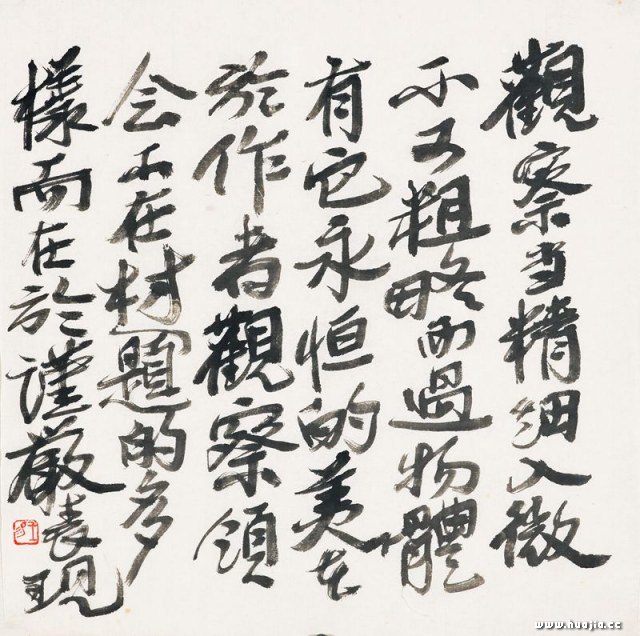 觀察当精細入微
不可粗略而過物體
有它永恒的美在
於作者觀察領
会不在材題的多
樣而在於謹嚴表現
www.huajia.cc